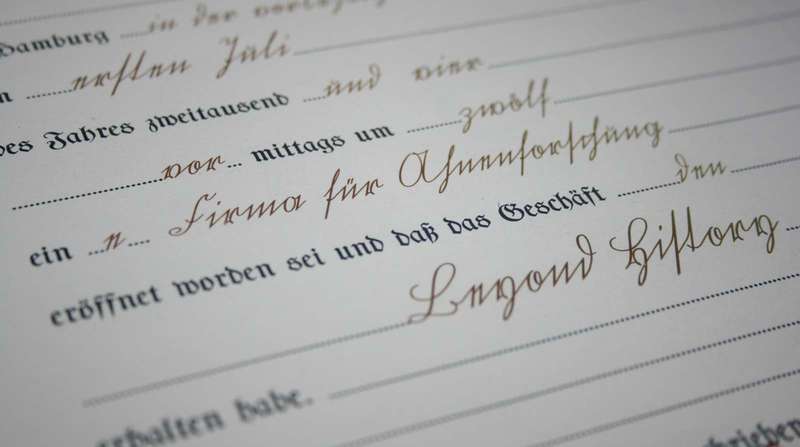 Hamburg in der
ersten Juli
des Jahres zweitausend und vier
vor mittags um zwölf
ein n Firma für Ahnenforschung
eröffnet worden sei und daß das Geschäft den
Beyond History
erhalten habe.